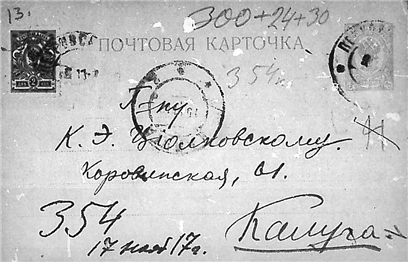 13.
300+24+30
ПОЧТОВАЯ КАРТОЧКА
354
К. Э. Циолковскому.
Коровинская, 61.
354
Калуга
17 нояб 17 г.